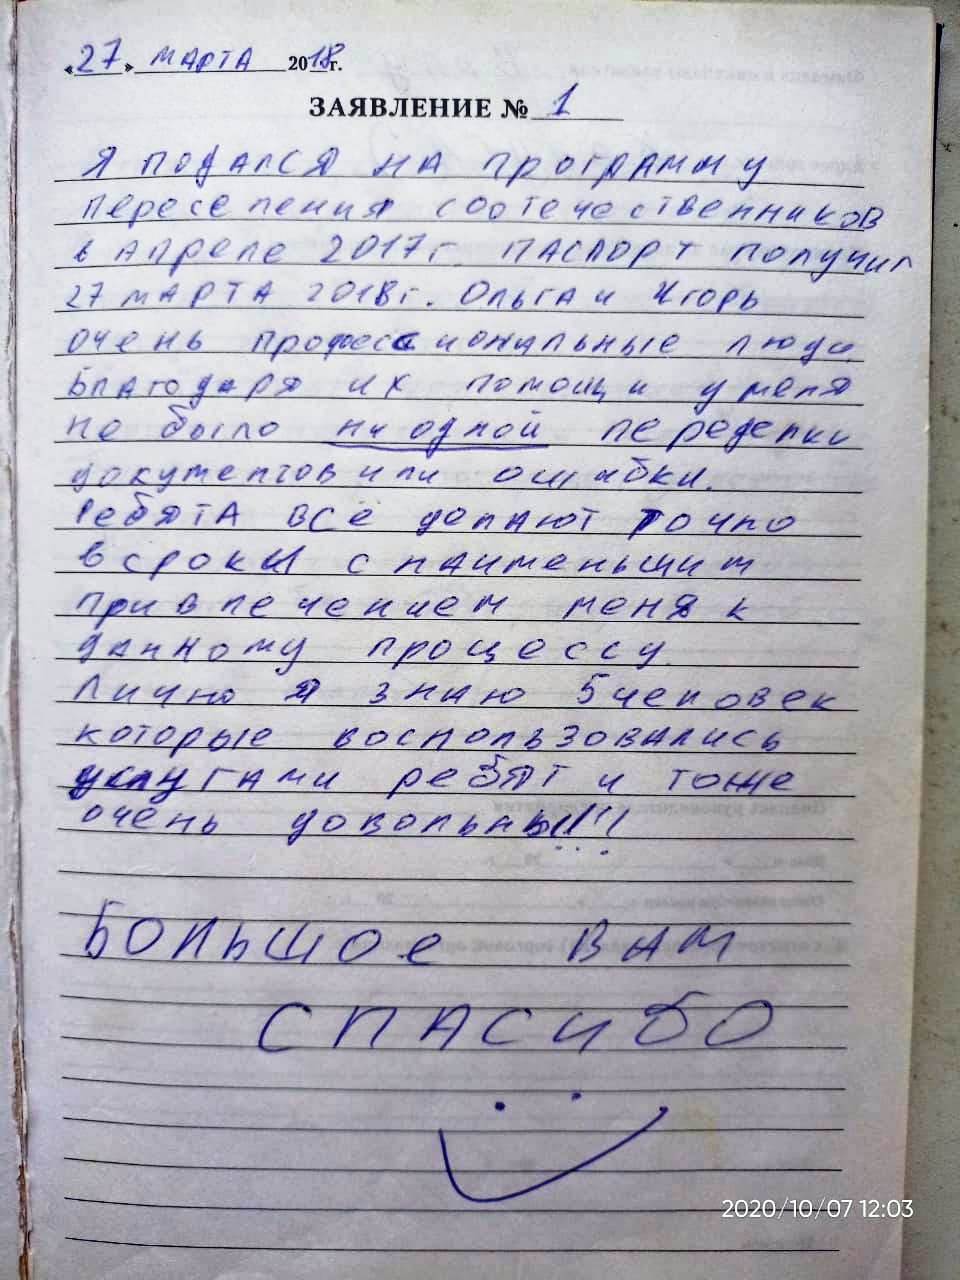 «27» МАРТА 2018г.
ЗАЯВЛЕНИЕ № 1
Я подался на программу
переселения соотечественников
в апреле 2017г. Паспорт получил
27 марта 2018г. Ольга и Игорь
очень профессиональные люди
Благодаря их помощи у меня
не было ни одной переделки
документов или ошибки.
Ребята всё делают точно
в сроки с наименьшим
привлечением меня к
данному процессу.
Лично я знаю 5 человек
которые воспользовались
услугами ребят и тоже
очень довольны!!!
Большое Вам
СПАСИБО
2020/10/07 12:03